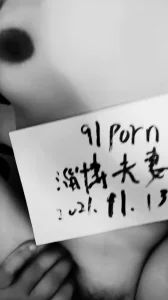 91porn
淄博夫妻
2021.11.13